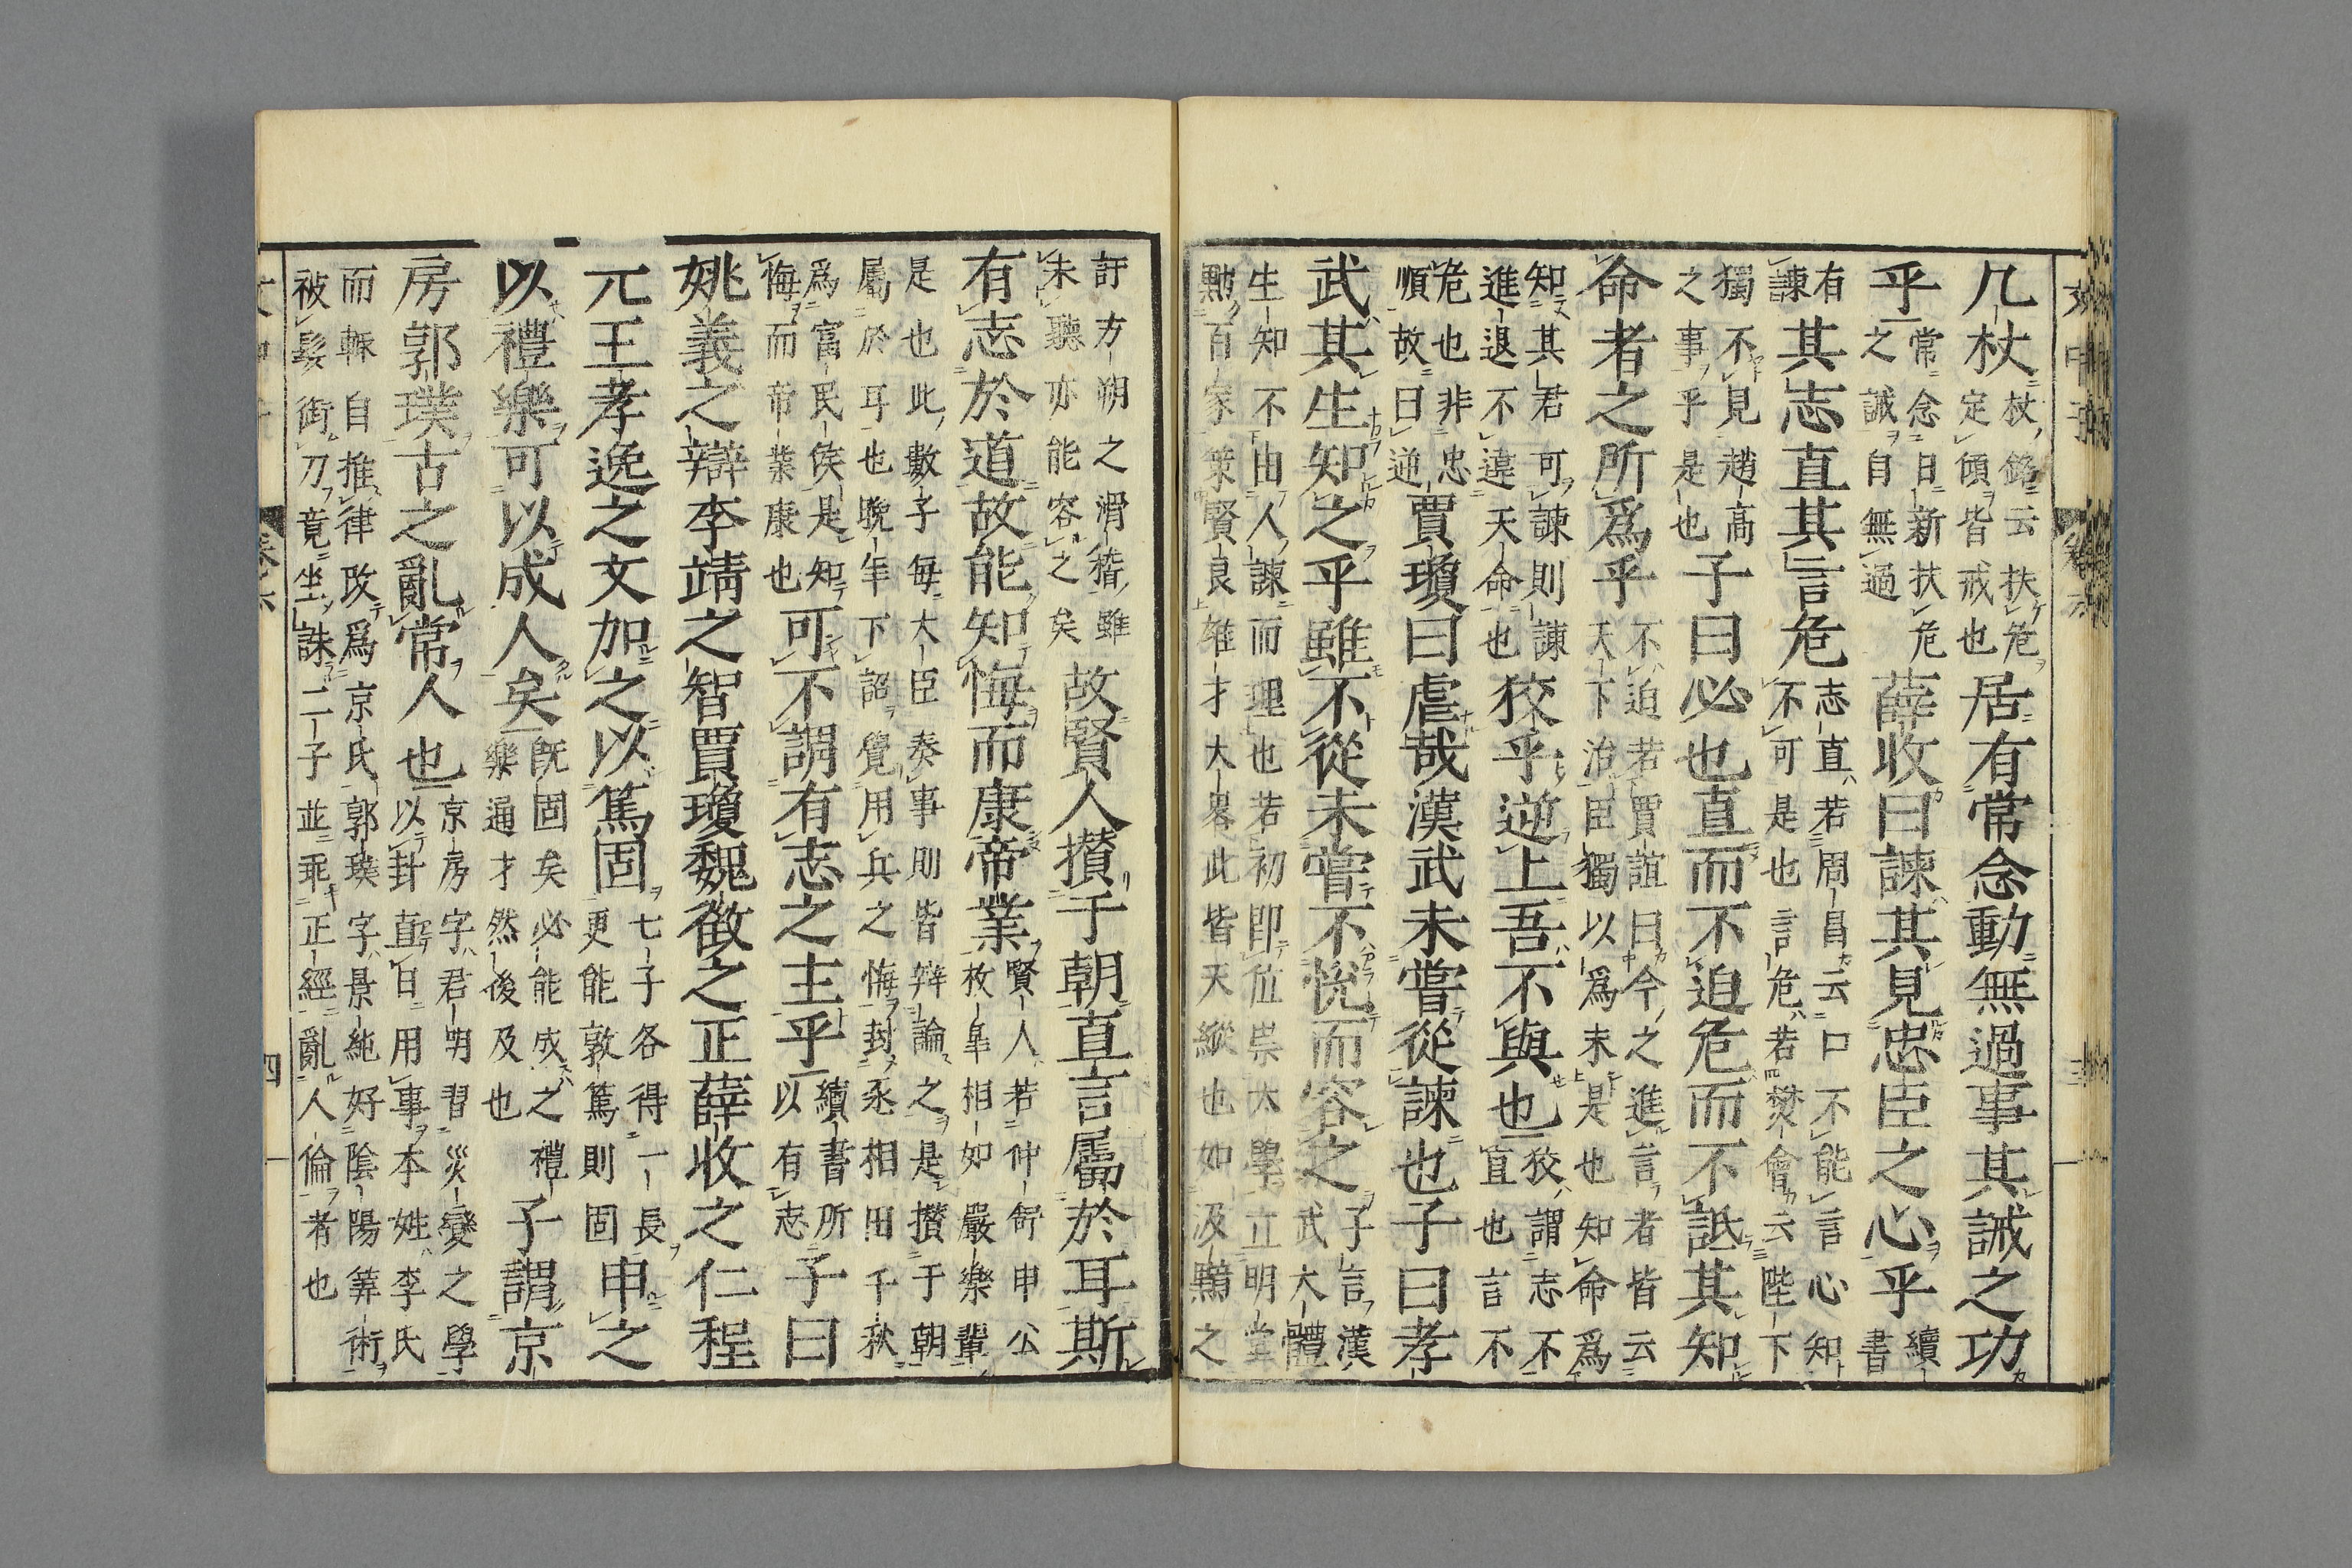 文中子 卷六 三
几杖
杖銘云扶危
定傾皆戒也
居有常念動無過事其誡之功
乎
常念日新扶危
之誡自無過
薛收曰諫其見忠臣之心乎
續
書
有
諫
其志直其言危
志直若周昌云口不能言心知
不可是也言危若焚會云陛下
獨不見趙高
之事乎是也
子曰必也直而不迫危而不詆其知
命者之所爲乎
不迫若賈誼曰今之進言者皆云
天下治臣獨以爲未是也知命爲
知其君可諫則諫
進退不違天命也
狡乎逆上吾不與也
狡謂志不
直也言不
危也非忠
順故曰逆
賈瓊曰虐哉漢武未嘗從諫也子曰孝
武其生知之乎雖不從未嘗不悅而容之
子言漢
武大體
生知不由人諫而理也若初即位崇太學立明堂
黜百家策賢良雄才大畧此皆天縱也如汲黯之
訐方朔之滑稽雖
未聽亦能容之矣
故賢人攅于朝直言屬於耳斯
有志於道故能知悔而康帝業
賢人若仲舒申公
枚皐相如嚴樂輩
是也此數子每大臣奏事則皆辯論之是攅于朝
屬於耳也晩年下詔覺用兵之悔封丞相田千秋
爲富民侯是知
悔而帝業康也
可不謂有志之主乎
續書所
以有志
子曰
姚義之辯李靖之智賈瓊魏徵之正薛收之仁程
元王孝逸之文加之以篤固
七子各得一長
更能敦篤則固
申之
以禮樂可以成人矣
旣固矣必能成之禮
樂通才然後及也
子謂京
房郭璞古之亂常人也
京房字君明習災變之學
以封直日用事本姓李氏
而輒自推律改爲京氏郭璞字景純好陰陽筭術
被髮銜刀竟坐誅二子並乖正經亂人倫者也
卷六 四